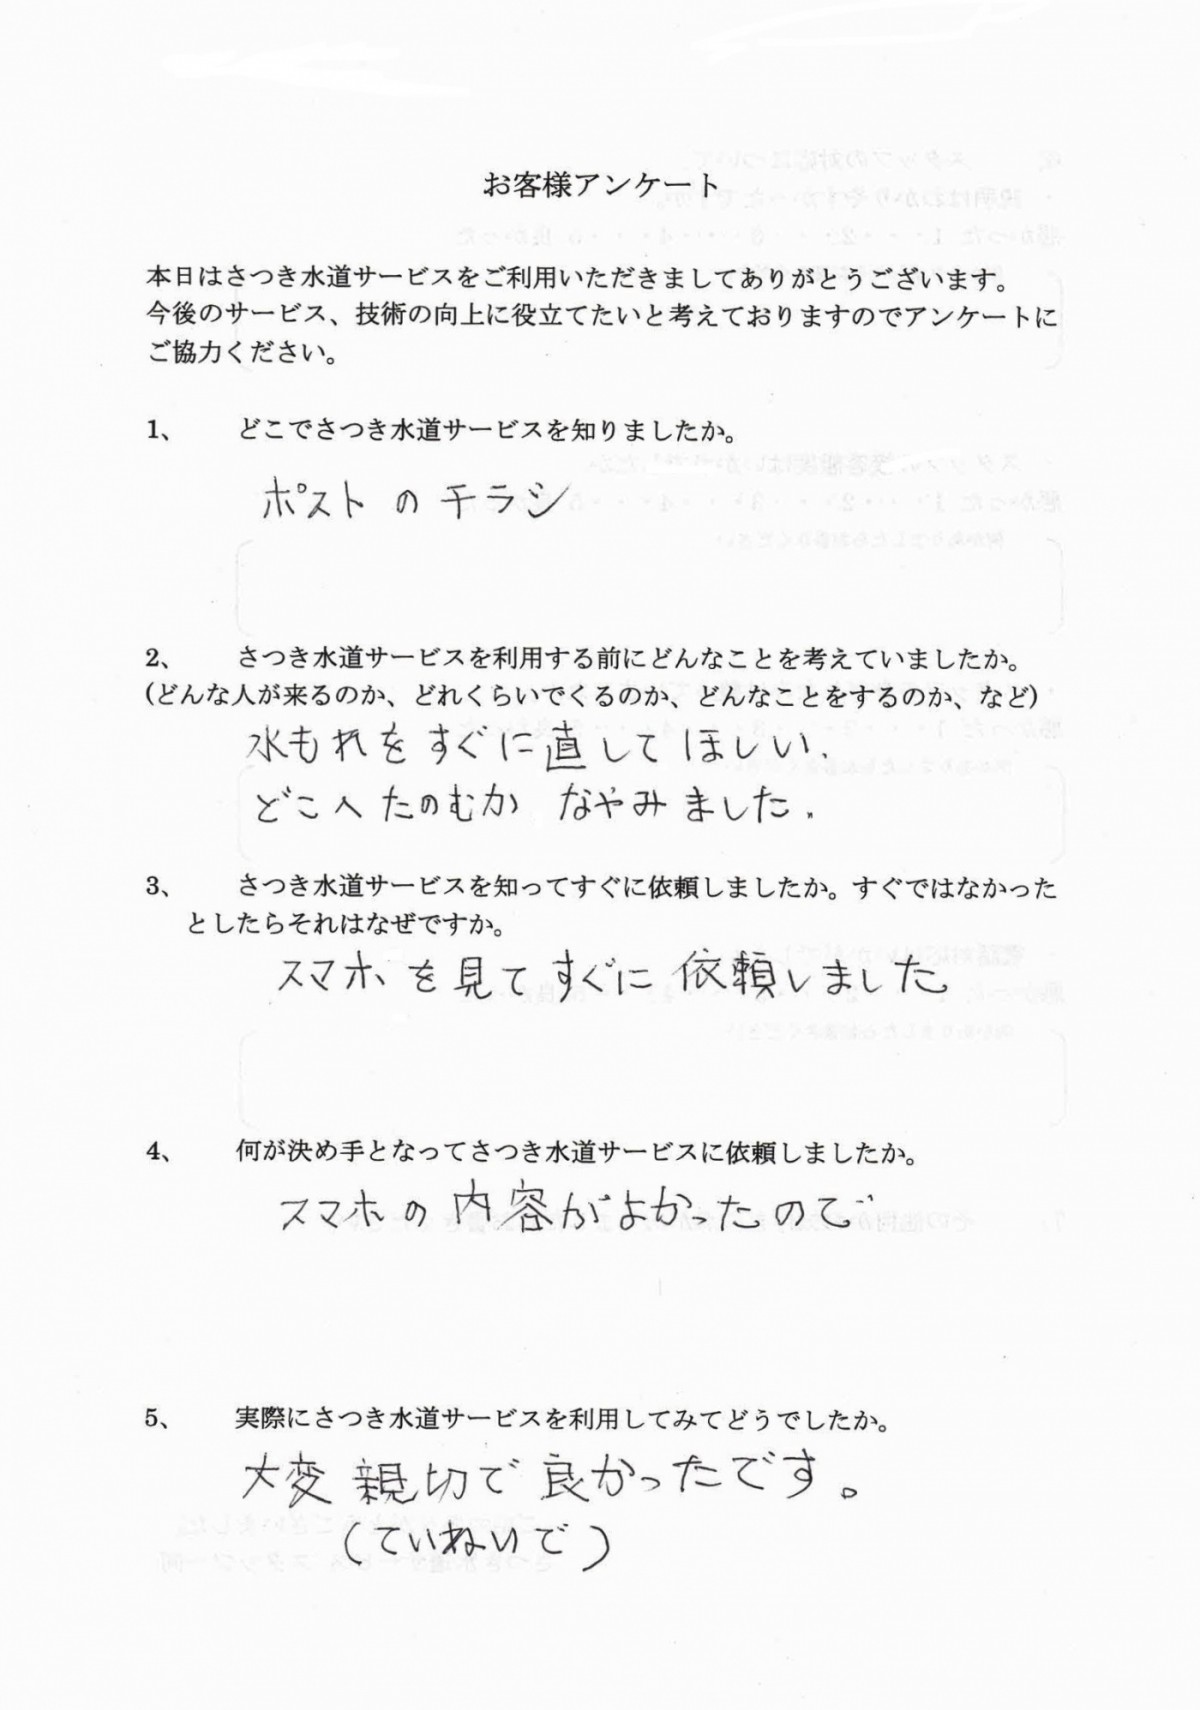 お客様アンケート
本日はさつき水道サービスをご利用いただきましてありがとうございます。
今後のサービス、技術の向上に役立てたいと考えておりますのでアンケートに
ご協力ください。
1、 どこでさつき水道サービスを知りましたか。
ポストのチラシ
2、 さつき水道サービスを利用する前にどんなことを考えていましたか。
(どんな人が来るのか、どれくらいでくるのか、どんなことをするのか、など)
水もれをすぐに直してほしい、
どこへたのむか なやみました。
3、 さつき水道サービスを知ってすぐに依頼しましたか。すぐではなかった
としたらそれはなぜですか。
スマホを見てすぐに依頼しました
4、 何が決め手となってさつき水道サービスに依頼しましたか。
スマホの内容がよかったので
5、 実際にさつき水道サービスを利用してみてどうでしたか。
大変親切で良かったです。
(ていねいで)